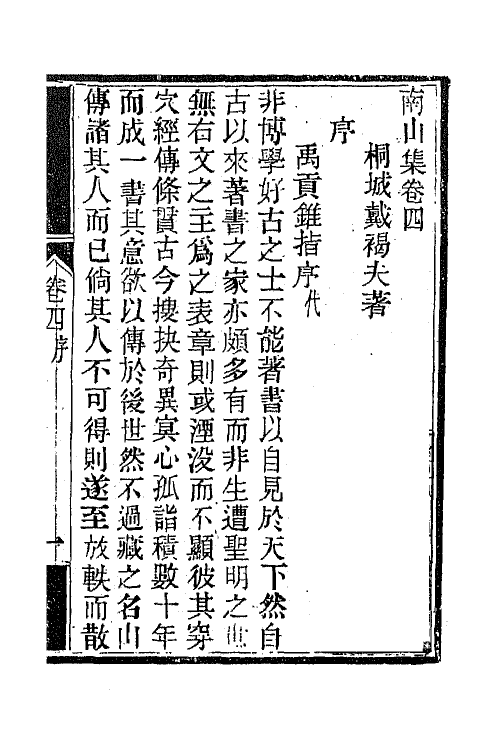 南山集卷四
桐城戴褐夫著
序
禹貢錐指序代
非博學好古之士不能著書以自見於天下然自
古以來著書之家亦頗多有而非生遭聖明之世
無右文之主爲之表章則或湮沒而不顯彼其穿
穴經傳條貫古今搜抉奇異冥心孤詣積數十年
而成一書其意欲以傳於後世然不過藏之名山
傳諸其人而已倘其人不可得則遂至放軼而散
卷四序
一